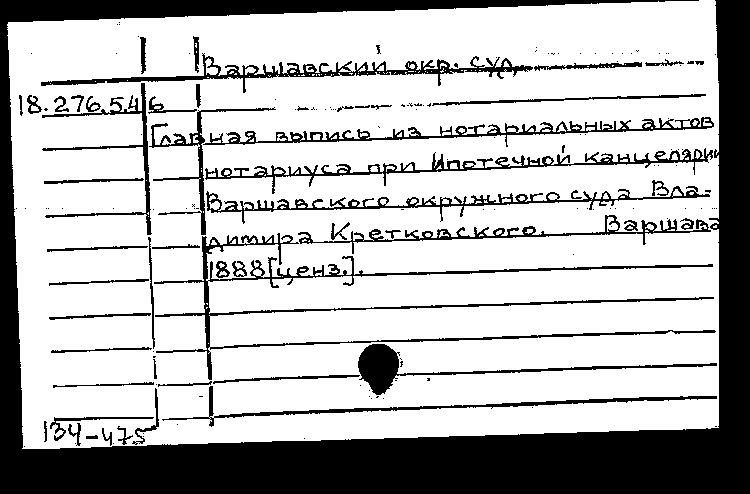 Варшавский окр. суд
18.276.5.46
Главная выпись из нотариальных актов
нотариуса при Ипотечной канцелярии
Варшавского окружного суда Вла=
димира Кретковского. Варшава
1888 [ценз.].
134-475